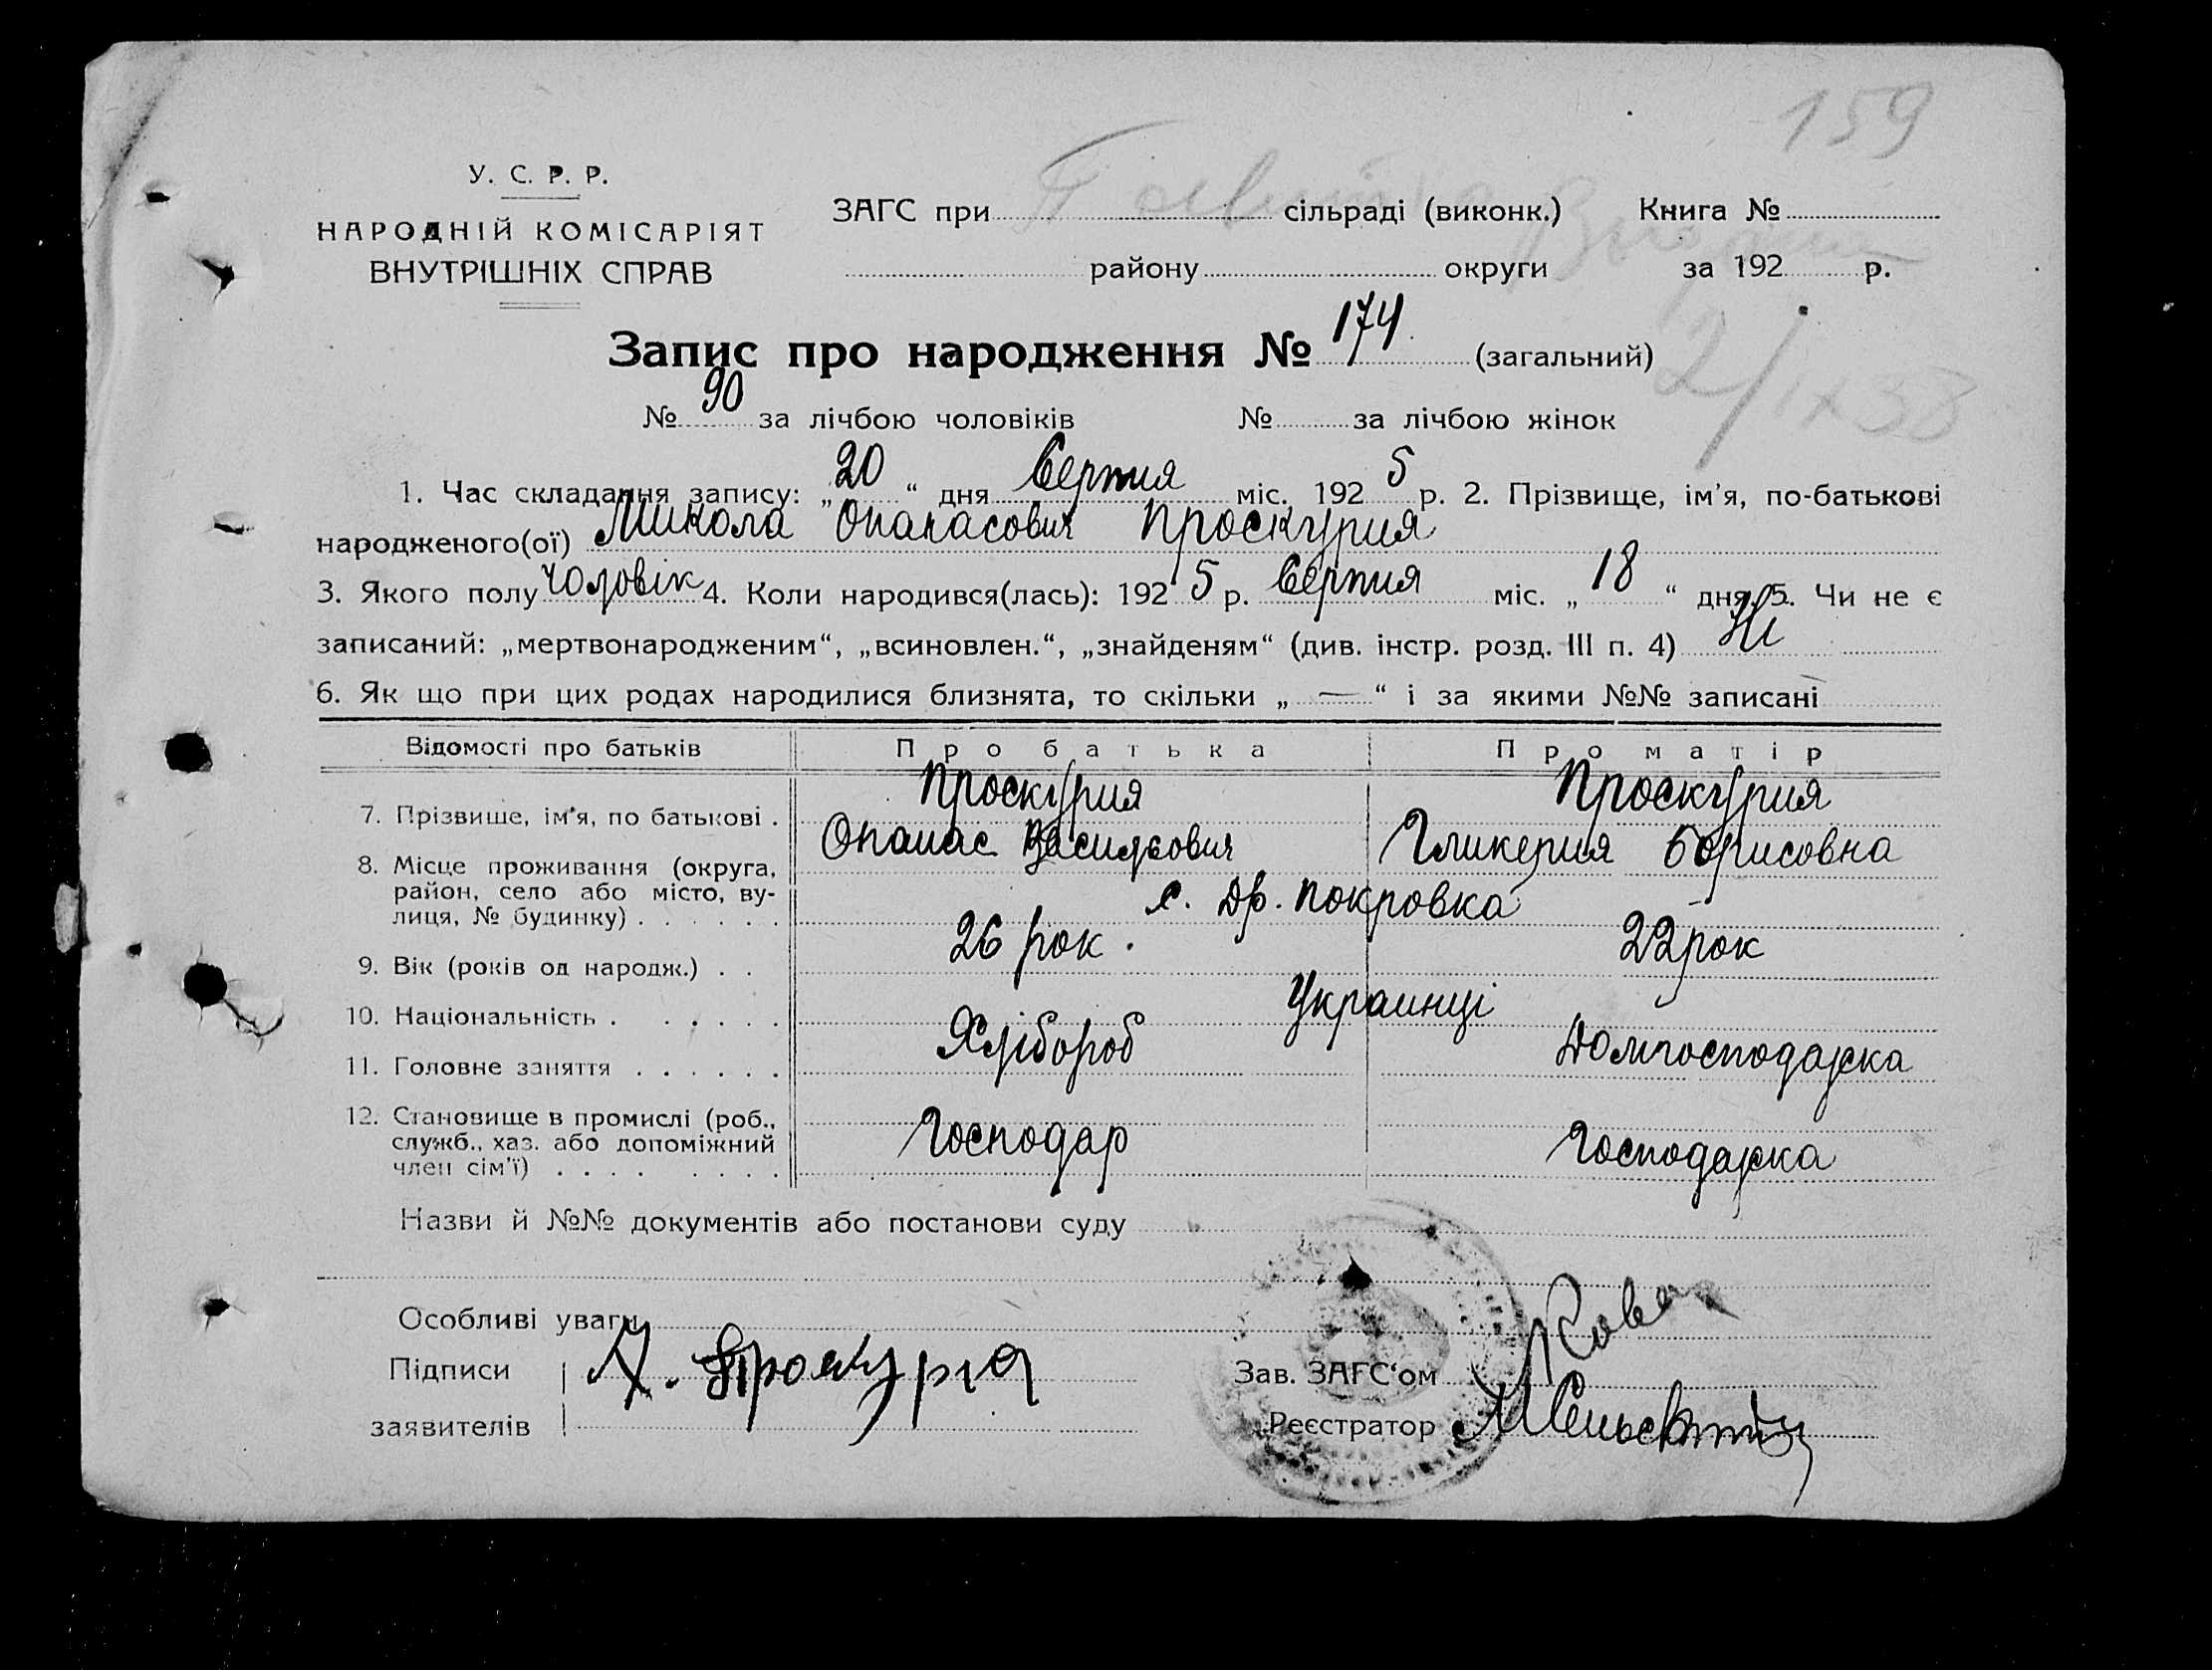 159
У. С. Р. Р.
НАРОДНІЙ КОМІСАРІЯТ
ВНУТРІШНІХ СПРАВ
ЗАГС при сільраді (виконк.) Книга №
району округи за 192 р.
Запис про народження № 174 (загальний)
№ 90 за лічбою чоловіків № за лічбою жінок
2/IX 38
1. Час складання запису: „20“ дня Серпня міс. 1925 р. 2. Прізвище, ім'я, по-батькові
народженого(ої) Микола Опанасович Проскурня
3. Якого полу чоловік 4. Коли народився(лась): 1925 р. Серпня міс. „18“ дня. 5. Чи не є
записаний: „мертвонародженим“, „всиновлен.“, „знайденям“ (див. інстр. розд. III п. 4) Ні
6. Як що при цих родах народилися близнята, то скільки „—“ і за якими №№ записані
Відомості про батьків Про батька Про матір
7. Прізвище, ім'я, по батькові . Проскурня Опанас Васильович Проскурня Гликерия Борисовна
8. Місце проживання (округа,
район, село або місто, ву-
лиця, № будинку) . . . . . . с. Др. Покровка
9. Вік (років од народж.) . . 26 рок. 22 рок
10. Національність . . . . . . Украинці
11. Головне заняття . . . . . . Хлібороб Домгосподарка
12. Становище в промислі (роб.,
служб., хаз. або допоміжний
член сім'ї) . . . . . . . . Господар Господарка
Назви й №№ документів або постанови суду
Особливі уваги
Підписи
заявителів
Зав. ЗАГС'ом
Реєстратор